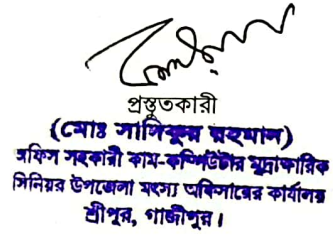 প্রস্তুতকারী
(মোঃ সাদিকুর রহমান)
অফিস সহকারী কাম-কম্পিউটার মুদ্রাক্ষরিক
সিনিয়র উপজেলা মৎস্য অফিসারের কার্যালয়
শ্রীপুর, গাজীপুর।